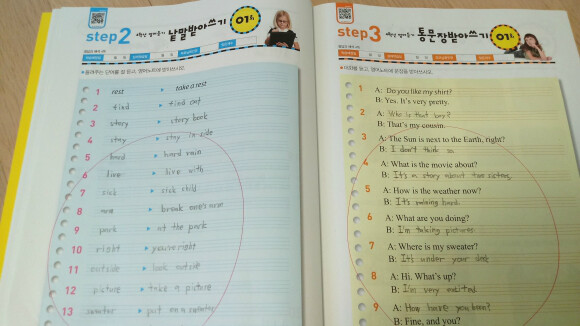 step2
낱말받아쓰기
01회
1 rest ▶ take a rest
2 find ▶ find out
3 story ▶ story book
4 stay ▶ stay in side
5 hard ▶ hard rain
6 live ▶ live with
7 sick ▶ sick child
8 ▶ break one's
9 park ▶ at the park
10 right ▶ you're right
11 outside ▶ look outside
12 picture ▶ take a picture
13 sweater ▶ put on a sweater
step3
통문장받아쓰기
01회
1 A: Do you like my shirt?
B: Yes. It's very pretty.
2 A: Who is that boy?
B: That's my cousin.
3 A: The Sun is next to the Earth, right?
B: I don't think so
4 A: What is the movie about?
B: It's a story about two sisters.
5 A: How is the weather now?
B: It's raining hard.
6 A: What are you doing?
B: I'm taking pictures.
7 A: Where is my sweater?
B: It's under your desk
8 A: Hi. What's up?
B: I'm very excited.
9 A: How have you been?
B: Fine, and you?